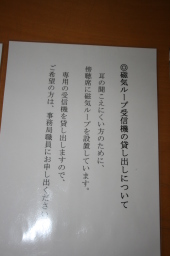 ◎磁気ループ受信機の貸し出しについて
耳の聞こえにくい方のために、
傍聴席に磁気ループを設置しています。
専用の受信機を貸し出しますので、
ご希望の方は、事務局職員にお申し出くださ